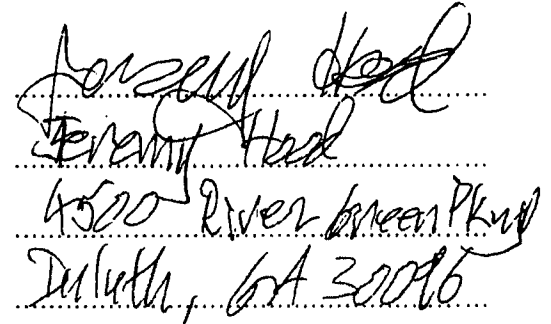 Jeremy Hood
Jeremy Hood
4500 River Green Pkwy
Duluth, GA 30096